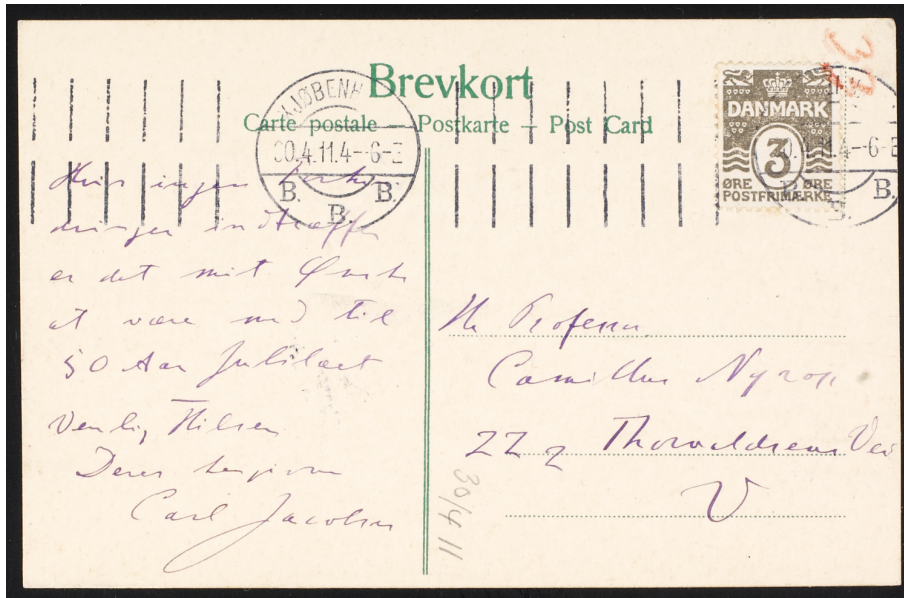 Brevkort
Carte postale — Postkarte — Post Card
KJØBENH
30.4.11.4-6-E
B. B.
B.
DANMARK
3
ØRE ØRE
POSTFRIMÆRKE
11.4-6-E
B.
Hvis ingen
dringer indtræffer
er det mit Ønske
at være med til
50 Aars Jubilæet
Venlig Hilsen
Deres hengivne
Carl Jacobsen
Hr Professor
Camillus Nyrop
Thorvaldsens Vei
V
30/4 11